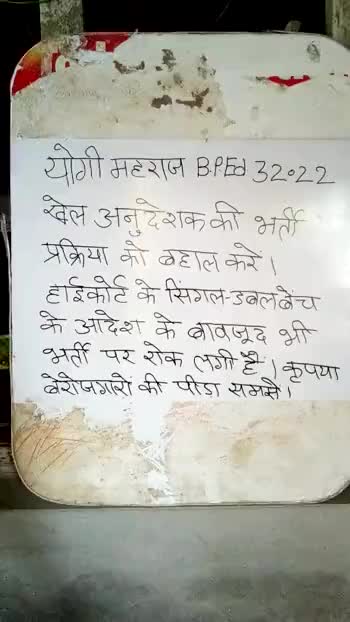 योगी महराज B.P.Ed 32022
खेल अनुदेशक की भर्ती
प्रक्रिया को बहाल करे ।
हाईकोर्ट के सिंगल-डबल बेंच
के आदेश के बावजूद भी
भर्ती पर रोक लगी है । कृपया
बेरोजगारो की पीडा समझे ।